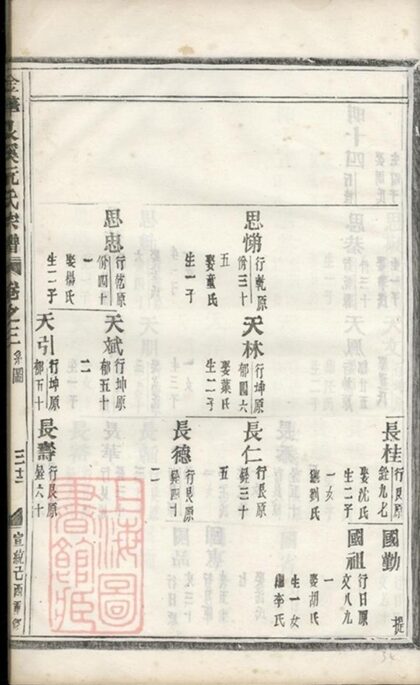 長桂
行艮原
銓九七
娶沈氏
生二子
一女
繼劉氏
國勤
提
國祖
行日原
文八九
一
娶胡氏
生一女
繼李氏
思悌
行乾原
份三十
五
娶童氏
生一子
天林
行坤原
郁四六
娶葉氏
生二子
長仁
行艮原
銓三十
五
長德
行艮原
銓四十
二
思忠
行乾原
份四十
一
娶楊氏
生二子
天斌
行坤原
郁五十
二
天引
行坤原
郁五十
長壽
行艮原
銓六十
氏宗譜
卷之三
系圖
三十二
宣統己酉重修
上海圖
書館藏